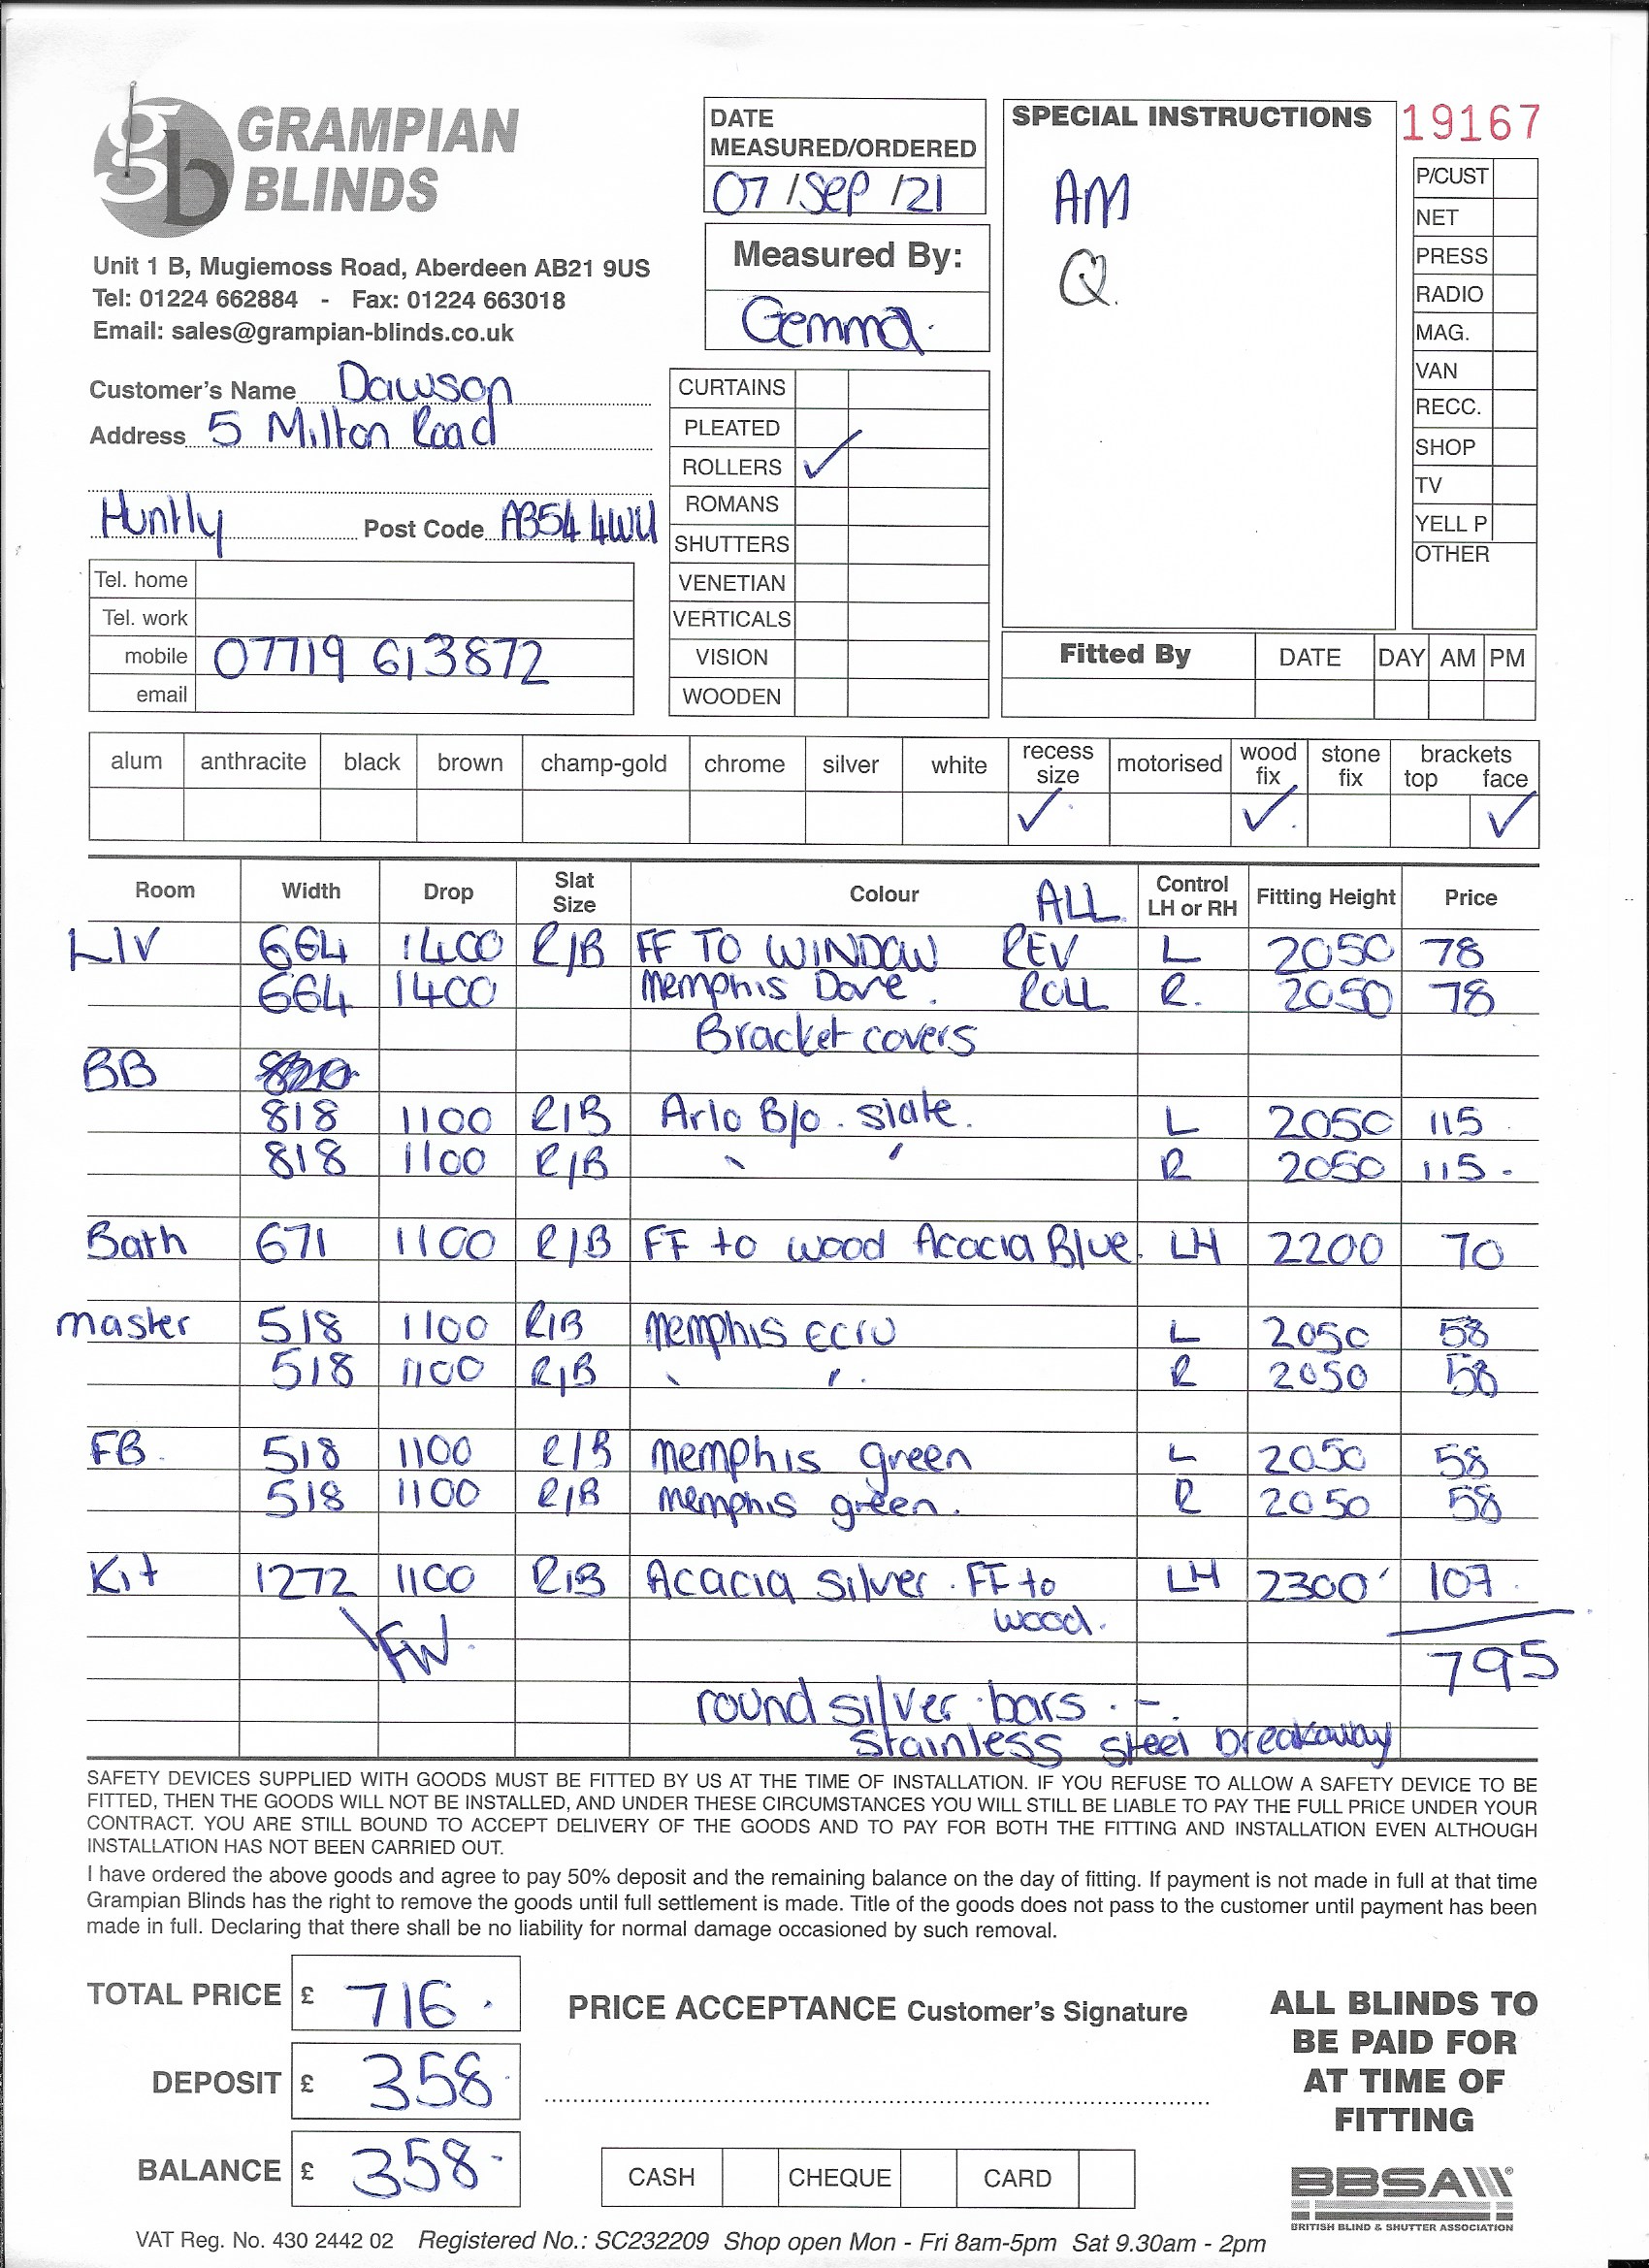 gb GRAMPIAN BLINDS
Unit 1 B, Mugiemoss Road, Aberdeen AB21 9US
Tel: 01224 662884 - Fax: 01224 663018
Email: sales@grampian-blinds.co.uk
DATE MEASURED/ORDERED
07/Sep/21
Measured By:
Gemma.
SPECIAL INSTRUCTIONS
AM
Q.
19167
P/CUST
NET
PRESS
RADIO
MAG.
VAN
RECC.
SHOP
TV
YELL P
OTHER
Customer's Name Dawson
Address 5 Milton Road
Huntly Post Code AB54 4WU
Tel. home
Tel. work
mobile 07719 613872
email
CURTAINS
PLEATED
ROLLERS ✓
ROMANS
SHUTTERS
VENETIAN
VERTICALS
VISION
WOODEN
Fitted By DATE DAY AM PM
alum anthracite black brown champ-gold chrome silver white recess size motorised wood fix stone fix brackets top face
✓ ✓ ✓
Room Width Drop Slat Size Colour ALL Control LH or RH Fitting Height Price
LIV 664 1400 R/B FF TO WINDOW REV L 2050 78
664 1400 Memphis Dove. ROLL R. 2050 78
Bracket covers
BB
818 1100 R/B Arlo B/o. slate. L 2050 115
818 1100 R/B " " R 2050 115.
Bath 671 1100 R/B FF to wood Acacia Blue. LH 2200 70
master 518 1100 R/B Memphis ecru L 2050 58
518 1100 R/B " " R 2050 58
FB. 518 1100 R/B Memphis green L 2050 58
518 1100 R/B Memphis green. R 2050 58
Kit 1272 1100 R/B Acacia Silver. FF to LH 2300 107.
wood.
FW. 795
round silver bars. -
stainless steel breakaway
SAFETY DEVICES SUPPLIED WITH GOODS MUST BE FITTED BY US AT THE TIME OF INSTALLATION. IF YOU REFUSE TO ALLOW A SAFETY DEVICE TO BE
FITTED, THEN THE GOODS WILL NOT BE INSTALLED, AND UNDER THESE CIRCUMSTANCES YOU WILL STILL BE LIABLE TO PAY THE FULL PRICE UNDER YOUR
CONTRACT. YOU ARE STILL BOUND TO ACCEPT DELIVERY OF THE GOODS AND TO PAY FOR BOTH THE FITTING AND INSTALLATION EVEN ALTHOUGH
INSTALLATION HAS NOT BEEN CARRIED OUT.
I have ordered the above goods and agree to pay 50% deposit and the remaining balance on the day of fitting. If payment is not made in full at that time
Grampian Blinds has the right to remove the goods until full settlement is made. Title of the goods does not pass to the customer until payment has been
made in full. Declaring that there shall be no liability for normal damage occasioned by such removal.
TOTAL PRICE £ 716.
DEPOSIT £ 358.
BALANCE £ 358.
PRICE ACCEPTANCE Customer's Signature
CASH CHEQUE CARD
ALL BLINDS TO
BE PAID FOR
AT TIME OF
FITTING
BBSA
BRITISH BLIND & SHUTTER ASSOCIATION
VAT Reg. No. 430 2442 02 Registered No.: SC232209 Shop open Mon - Fri 8am-5pm Sat 9.30am - 2pm